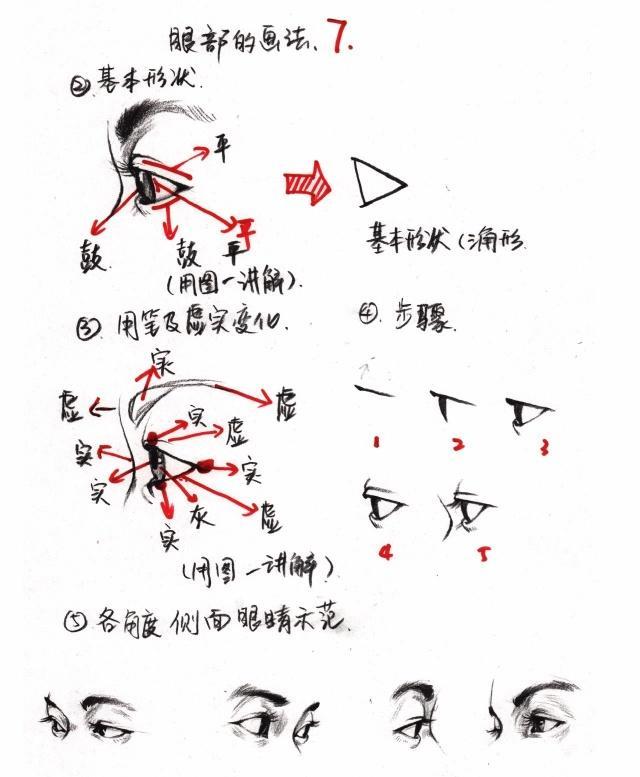 眼部的画法、7.
②.基本形状.
平
鼓. 鼓 平 平
(用图一讲解).
基本形状(三角形
③.用笔及虚实变化.
④. 步骤.
实
虚 虚
实 虚
实 实
实 灰 虚
实
(用图一讲解)
1 2 3
4 5
⑤各角度侧面眼睛示范.